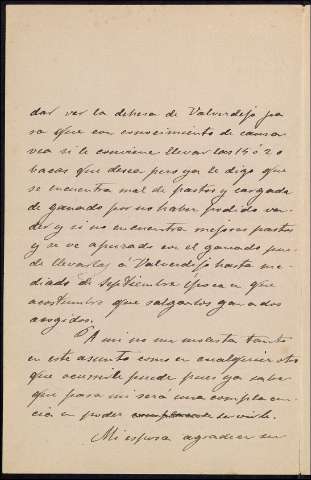 dar ver la dehesa de Valverdejo pa
ra que con conocimiento de causa
vea si le conviene llevar las 15 ó 20
bacas que desea pero ya le digo que
se encuentra mal de pastos y cargada
de ganado por no haber podido ven-
der y si no encuentra mejores pastos
y se ve apurado con el ganado pue-
de llevarlas á Valverdejo hasta me-
diado de Septiembre época en que
acostumbro que salgan los ganados
acogidos.
A mi no me molesta tanto
en este asunto como en cualquier otro
que ocurrirle puede pues ya saber
que para mi será una complacen-
cia en poder servirle.
Mi esposa agradece su